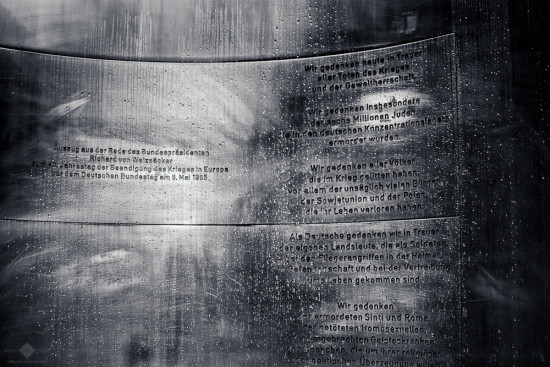 Auszug aus der Rede des Bundespräsidenten
Richard von Weizsäcker
Jahrestag der Beendigung des Krieges in Europa
vor dem Deutschen Bundestag am 8. Mai 1985
Wir gedenken heute in Trauer
aller Toten des Krieges
und der Gewaltherrschaft.
Wir gedenken insbesondere
der sechs Millionen Juden,
die in den deutschen Konzentrationslagern
ermordet wurden.
Wir gedenken aller Völker,
die im Krieg gelitten haben,
vor allem der unsäglich vielen Bürger
der Sowjetunion und der Polen,
die ihr Leben verloren haben.
Als Deutsche gedenken wir in Trauer
der eigenen Landsleute, die als Soldaten,
bei den Fliegerangriffen in der Heimat,
Gefangenschaft und bei der Vertreibung
ums Leben gekommen sind.
Wir gedenken
der ermordeten Sinti und Roma,
der getöteten Homosexuellen,
umgebrachten Geisteskranken,
Menschen, die um ihrer religiösen
oder politischen Überzeugung willen